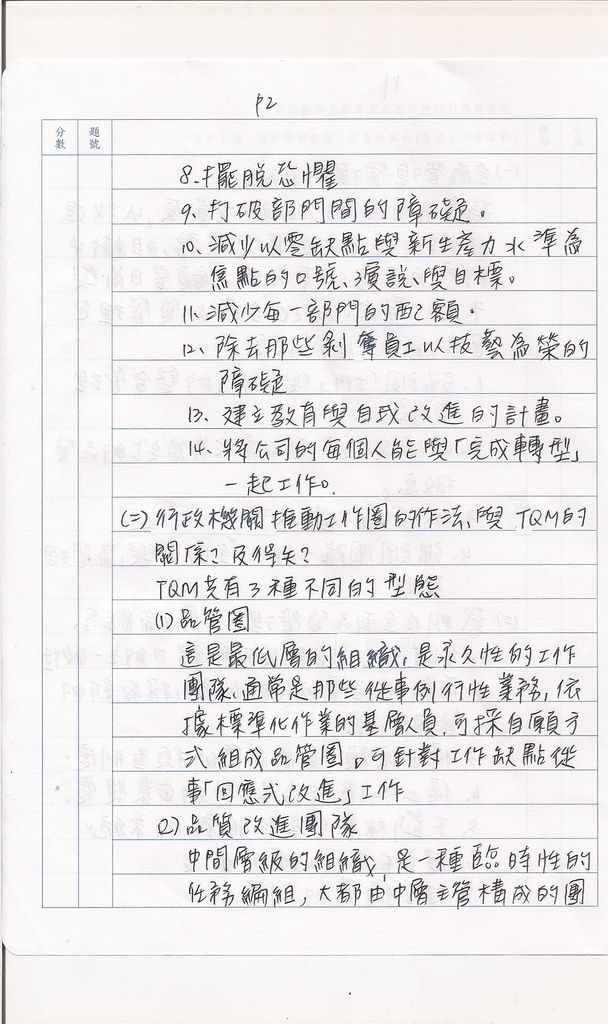 P2
分數
題號
8、擺脫恐懼
9、打破部門間的障礙。
10、減少以零缺點與新生產力水準為
焦點的口號、演說、與目標。
11、減少每一部門的配額。
12、除去那些剝奪員工以技藝為榮的
障礙
13、建立教育與自我改進的計畫。
14、將公司的每個人能與「完成轉型」
一起工作。
(二)行政機關推動工作圈的作法、與TQM的
關係？及得失？
TQM共有3種不同的型態
(1)品管圈
這是最低層的組織，是永久性的工作
團隊，通常是那些從事例行性業務，依
據標準化作業的基層人員，可採自願方
式組成品管圈。可針對工作缺點從
事「回應式改進」工作
(2)品質改進團隊
中間層級的組織，是一種臨時性的
任務編組，大都由中層主管構成的團